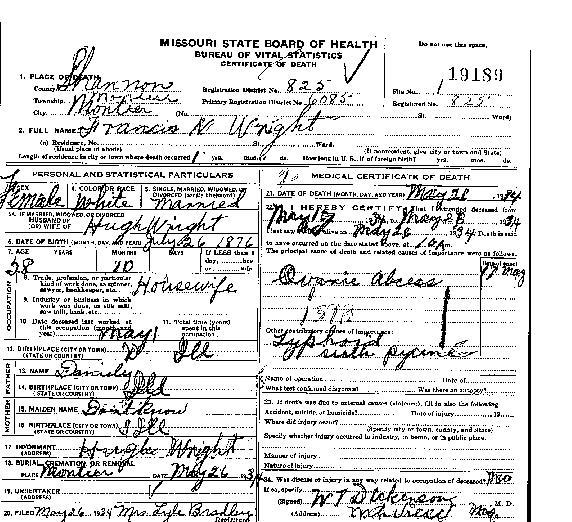 MISSOURI STATE BOARD OF HEALTH
BUREAU OF VITAL STATISTICS
CERTIFICATE OF DEATH
Do not use this space.
19189
1. PLACE OF DEATH
County Shannon Registration District No. 825 File No.
Township Montier Primary Registration District No. 6085 Registered No. 825
City Montier (No. St. Ward)
2. FULL NAME Francis N Wright
(a) Residence, No. St. Ward.
(Usual place of abode) (If nonresident, give city or town and State)
Length of residence in city or town where death occurred yrs. mos. ds. How long in U.S., if of foreign birth? yrs. mos. ds.
PERSONAL AND STATISTICAL PARTICULARS
3. SEX 4. COLOR OR RACE 5. SINGLE, MARRIED, WIDOWED, OR DIVORCED
Female White Married
5A. IF MARRIED, WIDOWED, OR DIVORCED
HUSBAND OF
(OR) WIFE OF Hugh Wright
6. DATE OF BIRTH (MONTH, DAY, AND YEAR) July 26 1876
7. AGE YEARS MONTHS DAYS If LESS than 1 day, hrs. or min.
58 10
OCCUPATION
8. Trade, profession, or particular kind of work done, as spinner, sawyer, bookkeeper, etc. Housewife
9. Industry or business in which work was done, as silk mill, saw mill, bank, etc.
10. Date deceased last worked at this occupation (month and year) May 11. Total time (years) spent in this occupation
12. BIRTHPLACE (CITY OR TOWN)
(STATE OR COUNTRY) Ill
FATHER
13. NAME
14. BIRTHPLACE (CITY OR TOWN)
(STATE OR COUNTRY) Ill
MOTHER
15. MAIDEN NAME Dont Know
16. BIRTHPLACE (CITY OR TOWN)
(STATE OR COUNTRY) Ill
17. INFORMANT Hugh Wright
(ADDRESS)
18. BURIAL, CREMATION, OR REMOVAL
PLACE Montier DATE May 26 34
19. UNDERTAKER
(ADDRESS)
20. FILED May 26, 1934 Mrs. Lyle Bradley
Registrar
MEDICAL CERTIFICATE OF DEATH
21. DATE OF DEATH (MONTH, DAY, AND YEAR) May 26 1934
22. I HEREBY CERTIFY, That I attended deceased from
May 34 to May 1934
I last saw May 26 1934 Death is said
to have occurred on the date stated above, at
The principal cause of death and related causes of importance were as follows:
Date of onset
Abcess May
Other contributory causes of importance:
Typhoid
with
Name of operation Date of
What test confirmed diagnosis? Was there an autopsy?
23. If death was due to external causes (violence), fill in also the following:
Accident, suicide, or homicide? Date of injury 19
Where did injury occur?
(Specify city or town, county, and State)
Specify whether injury occurred in industry, in home, or in public place.
Manner of injury
Nature of injury
24. Was disease or injury in any way related to occupation of deceased? No
If so, specify
(Signed) W T M. D.
(Address) Mo